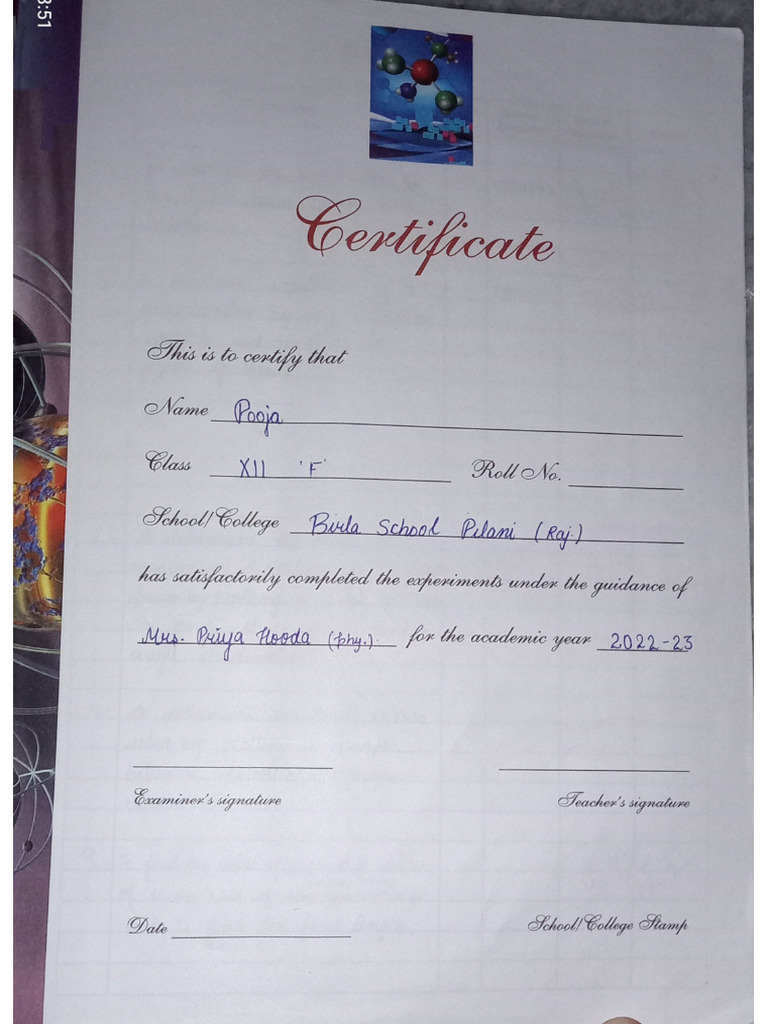 3:51
Certificate
This is to certify that
Name Pooja
Class XII 'F' Roll No.
School/College Birla School Pilani (Raj.)
has satisfactorily completed the experiments under the guidance of
Mrs. Priya Hooda (phy.) for the academic year 2022-23
Examiner's signature Teacher's signature
Date School/College Stamp